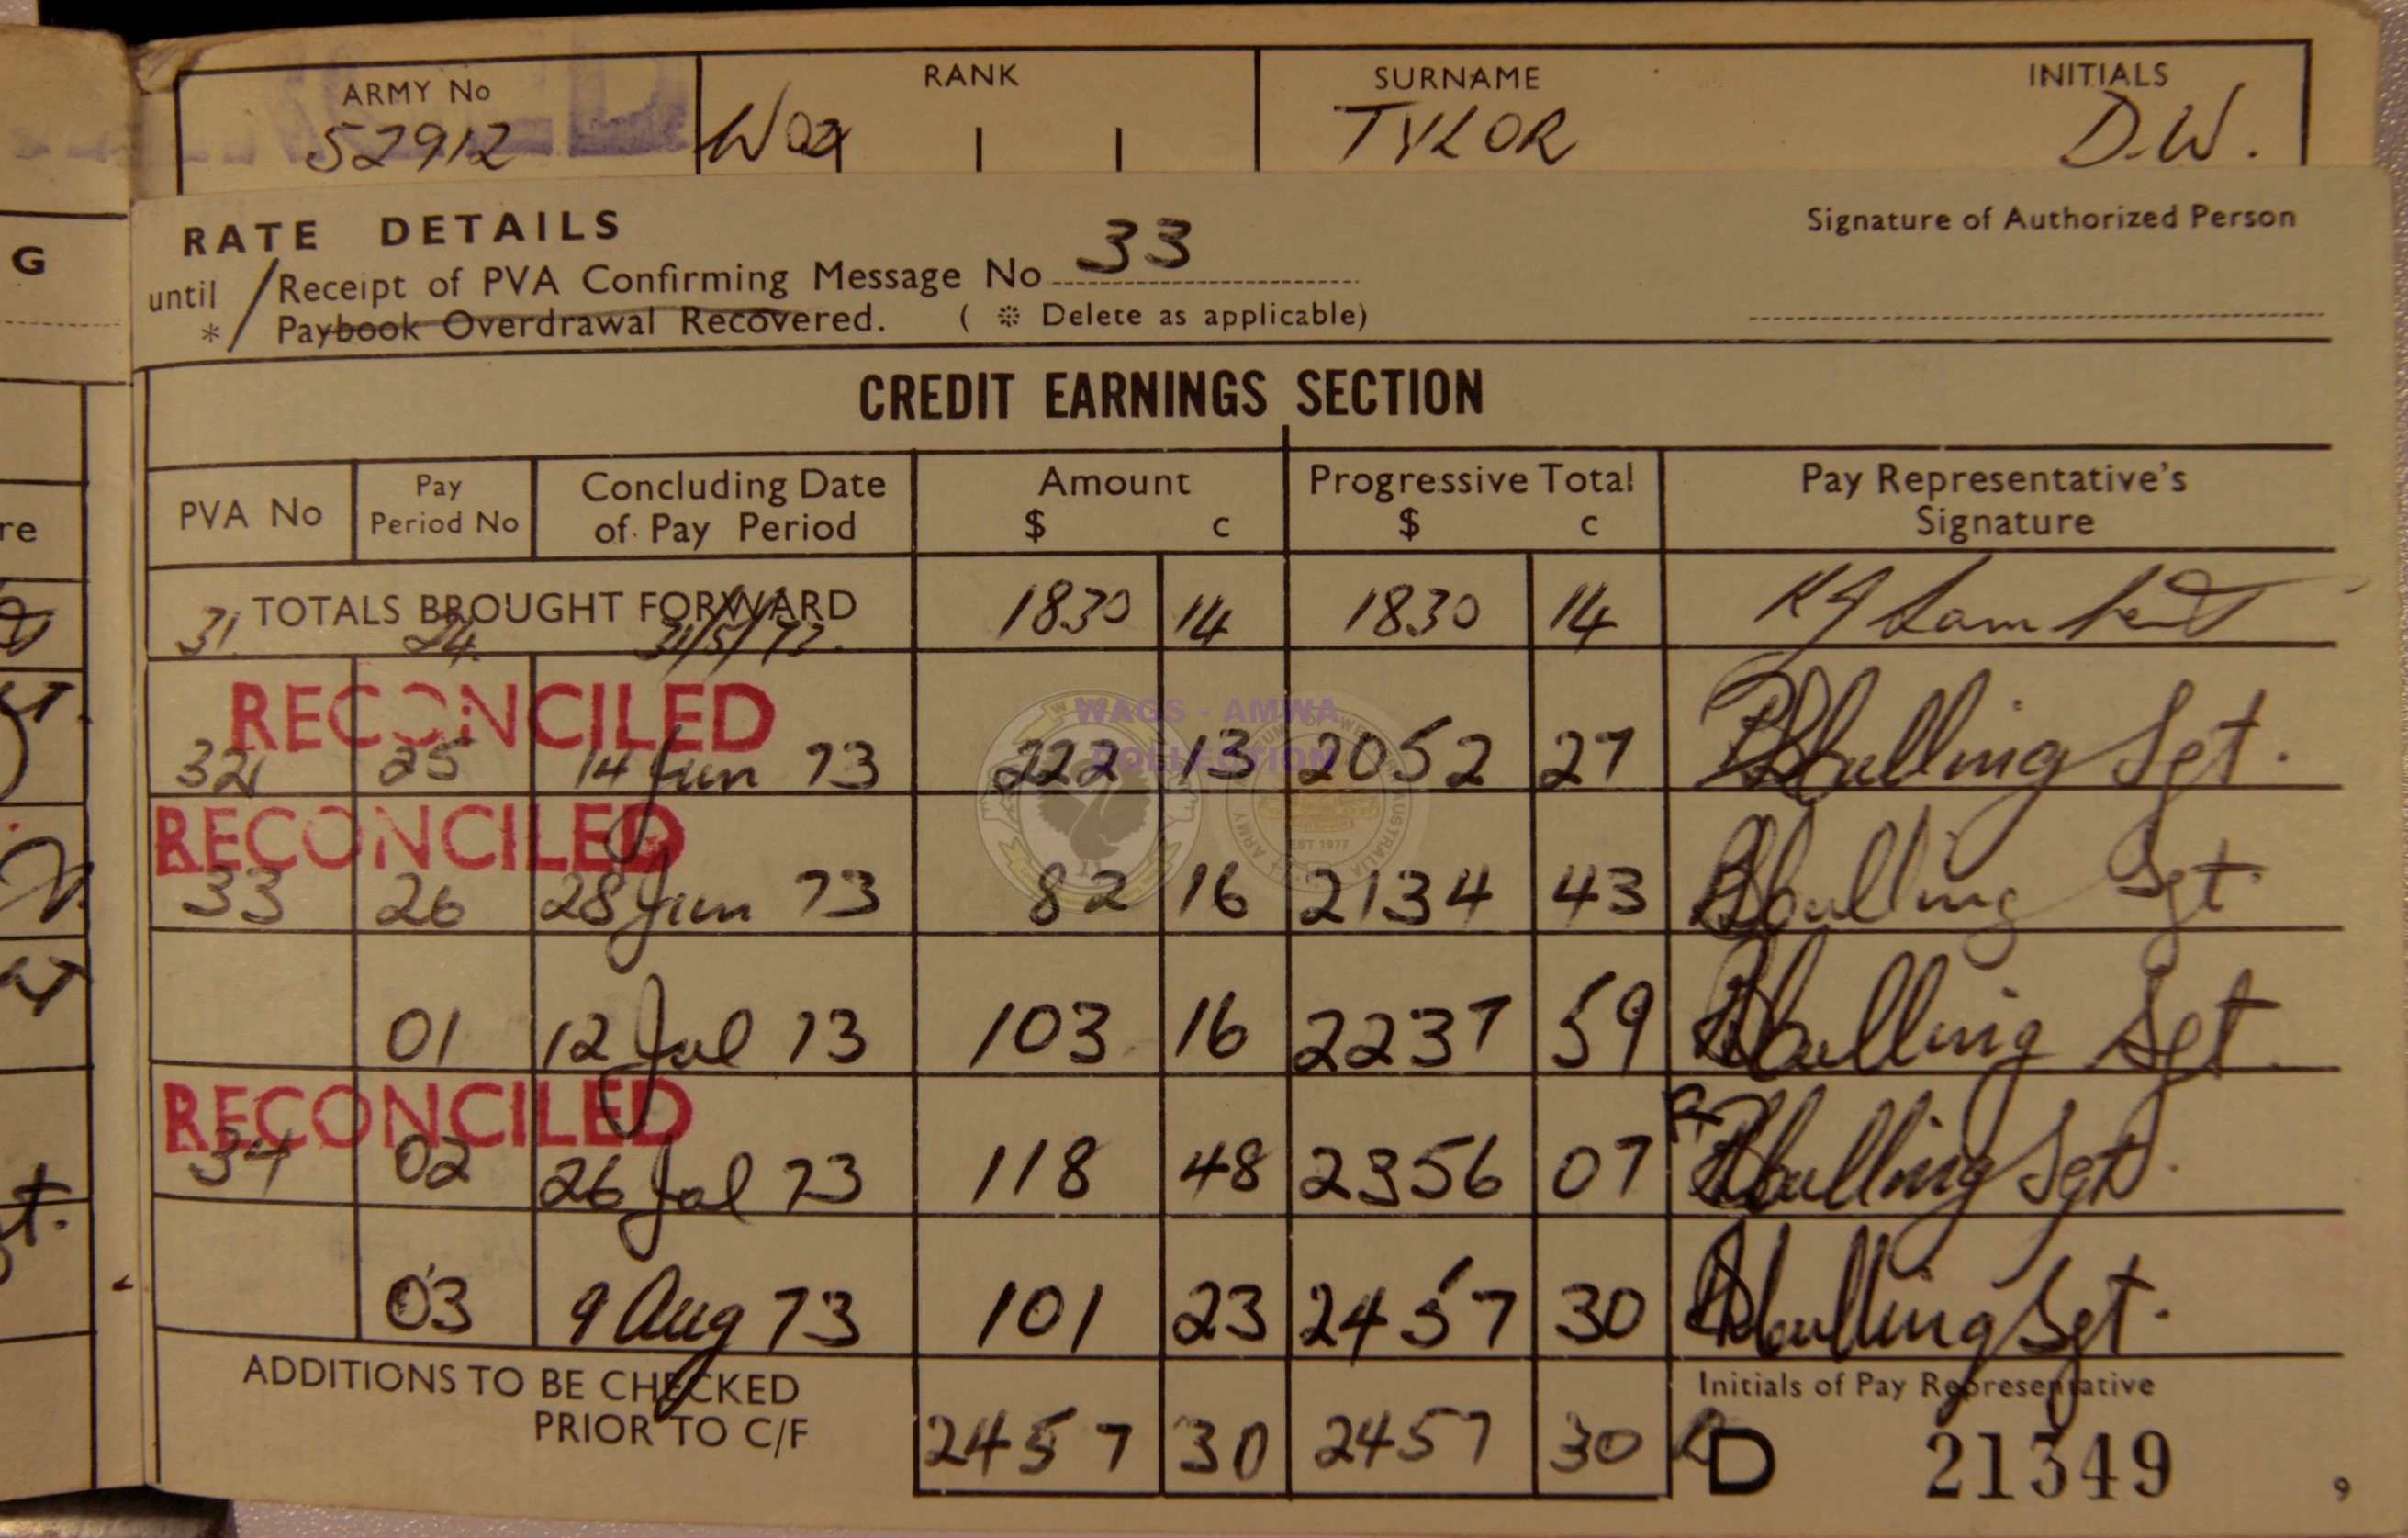 ARMY No RANK SURNAME INITIALS
52912 WO2 TYLOR D.W.
RATE DETAILS Signature of Authorized Person
G
until / Receipt of PVA Confirming Message No 33
* / Paybook Overdrawal Recovered. ( * Delete as applicable)
CREDIT EARNINGS SECTION
PVA No Pay Period No Concluding Date of Pay Period Amount $ c Progressive Total $ c Pay Representative's Signature
re
TOTALS BROUGHT FORWARD 1830 14 1830 14
31 24 31/5/73
RECONCILED
WAGS - AMWA
COLLECTION
32 25 14 Jun 73 222 13 2052 27 Sgt.
RECONCILED
EST 1977
33 26 28 Jun 73 82 16 2134 43 Sgt
01 12 Jul 73 103 16 2237 59 Sgt
RECONCILED
34 02 26 Jul 73 118 48 2356 07 Sgt.
03 9 Aug 73 101 23 2457 30 Sgt.
ADDITIONS TO BE CHECKED Initials of Pay Representative
PRIOR TO C/F 2457 30 2457 30 D 21349
9